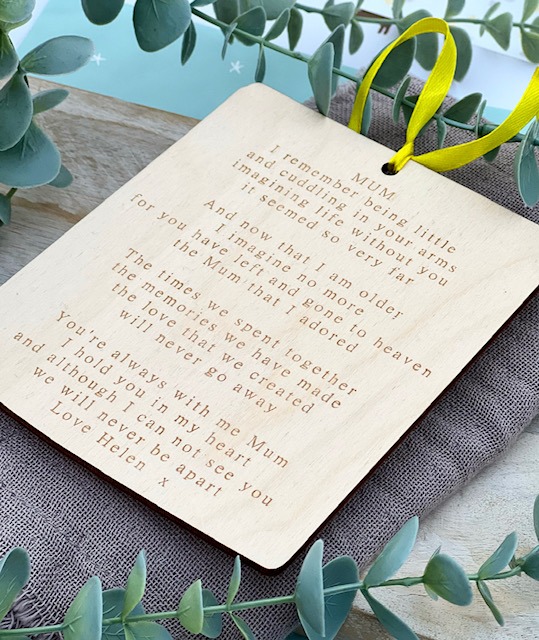 MUM
I remember being little
and cuddling in your arms
imagining life without you
it seemed so very far
And now that I am older
I imagine no more
for you have left and gone to heaven
the Mum that I adored
The times we spent together
the memories we have made
the love that we created
will never go away
You're always with me Mum
I hold you in my heart
and although I can not see you
we will never be apart
Love Helen x